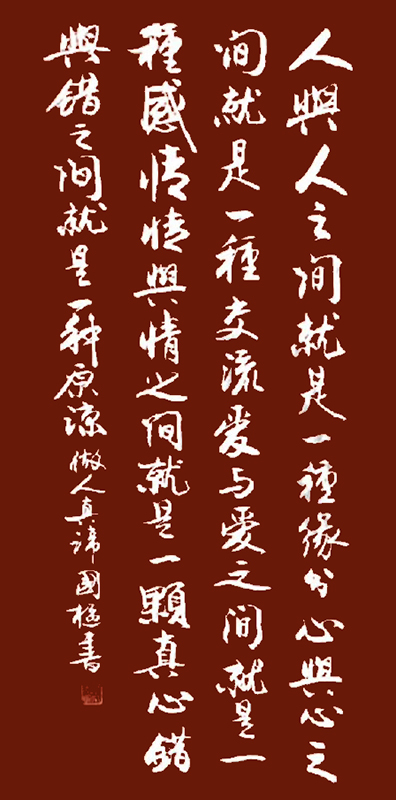 人與人之间就是一種缘分心與心之
间就是一種交流爱与愛之间就是一
種感情情與情之间就是一顆真心错
與错之间就是一种原谅做人真谛國極書